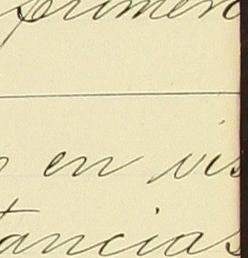 primero
en vis
tancias